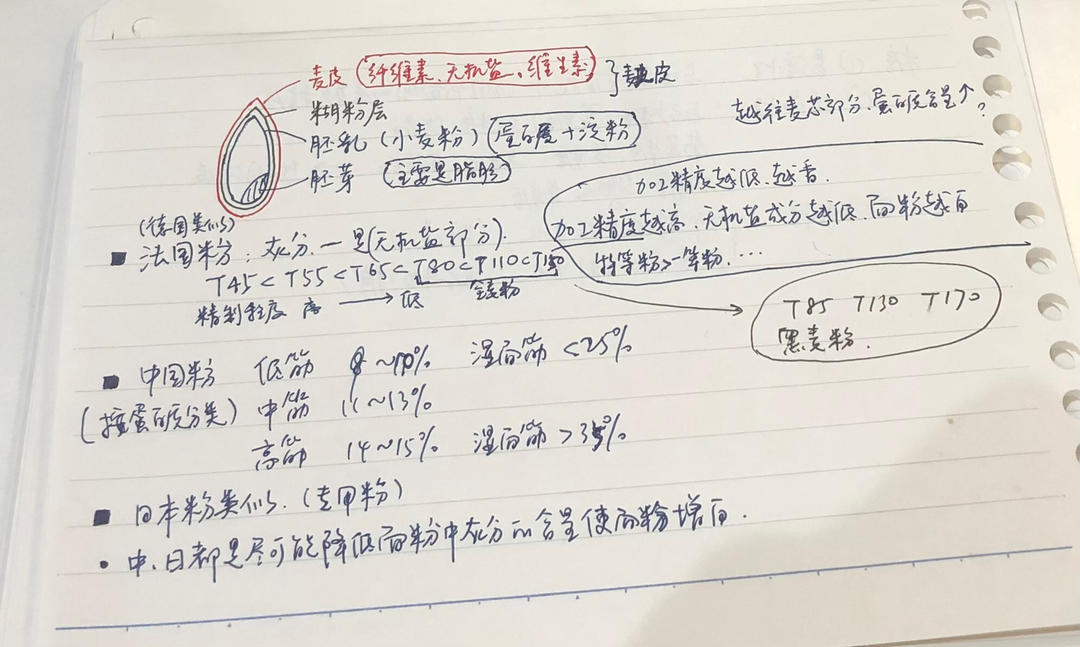 麦皮(纤维素、无机盐、维生素) } 麸皮
糊粉层
胚乳(小麦粉)(蛋白质+淀粉)
胚芽(主要是脂肪)
越往麦芯部分、蛋白质含量↑?
加工精度越低、越香.
加工精度越高、无机盐成分越低、面粉越白
特等粉>一等粉、…
(德国类似)
■ 法国粉:灰分 一是(无机盐部分).
T45<T55<T65<T80<T110<T150
精制程度 高 → 低 全麦粉
T85 T130 T170
黑麦粉.
■ 中国粉 低筋 8~10% 湿面筋<25%
(按蛋白质分类) 中筋 11~13%
高筋 14~15% 湿面筋>35%
■ 日本粉类似.(专用粉)
• 中、日都是尽可能降低面粉中灰分的含量使面粉增白.